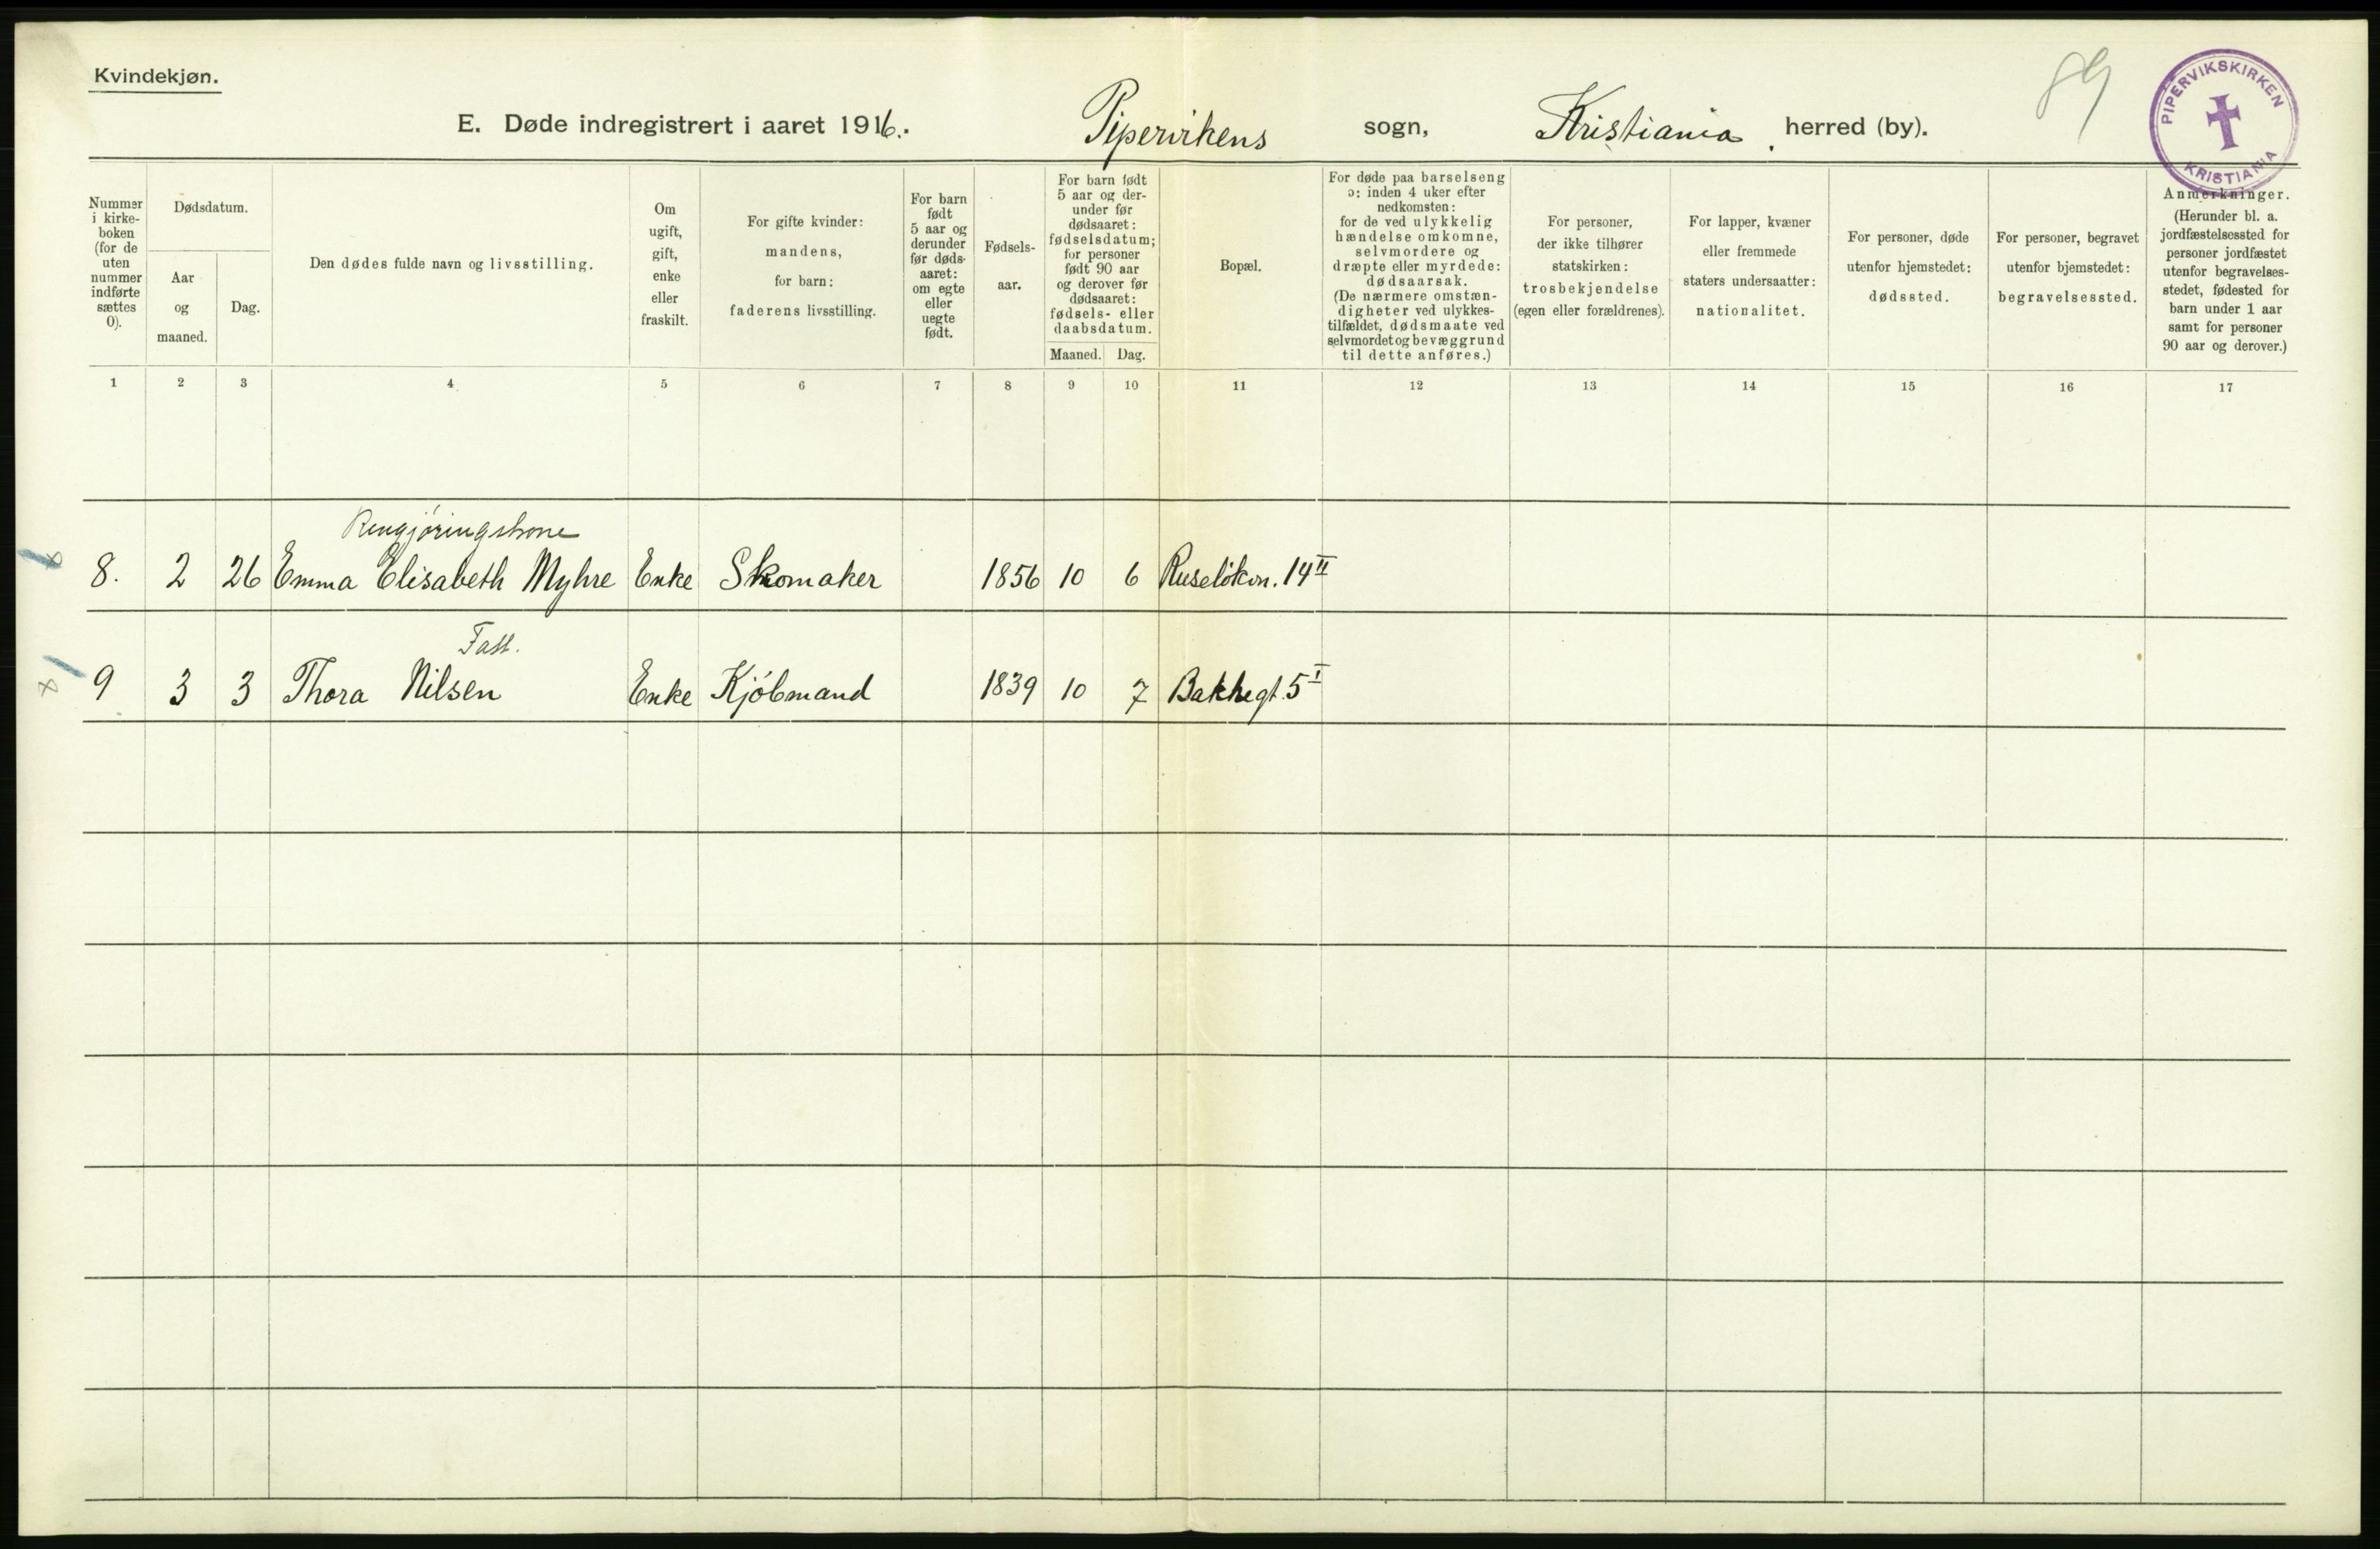 Kvindekjøn.
89
PIPERVIKSKIRKEN
KRISTIANIA
E. Døde indregistrert i aaret 1916. Pipervikens sogn, Kristiania herred (by).
Nummer
i kirke-
boken
(for de
uten
nummer
indførte
sættes
0).
Dødsdatum.
Aar
og
maaned.
Dag.
Den dødes fulde navn og livsstilling.
Om
ugift,
gift,
enke
eller
fraskilt.
For gifte kvinder:
mandens,
for barn:
faderens livsstilling.
For barn
født
5 aar og
derunder
før døds-
aaret:
om egte
eller
uegte
født.
Fødsels-
aar.
For barn født
5 aar og der-
under før
dødsaaret:
fødselsdatum;
for personer
født 90 aar
og derover før
dødsaaret:
fødsels- eller
daabsdatum.
Maaned. Dag.
Bopæl.
For døde paa barselseng
ɔ: inden 4 uker efter
nedkomsten:
for de ved ulykkelig
hændelse omkomne,
selvmordere og
dræpte eller myrdede:
dødsaarsak.
(De nærmere omstæn-
digheter ved ulykkes-
tilfældet, dødsmaate ved
selvmordet og bevæggrund
til dette anføres.)
For personer,
der ikke tilhører
statskirken:
trosbekjendelse
(egen eller forældrenes).
For lapper, kvæner
eller fremmede
staters undersaatter:
nationalitet.
For personer, døde
utenfor hjemstedet:
dødssted.
For personer, begravet
utenfor bjemstedet:
begravelsessted.
Anmerkninger.
(Herunder bl. a.
jordfæstelsessted for
personer jordfæstet
utenfor begravelses-
stedet, fødested for
barn under 1 aar
samt for personer
90 aar og derover.)
1 2 3 4 5 6 7 8 9 10 11 12 13 14 15 16 17
Rengjøringskone
x 8. 2 26 Emma Elisabeth Myhre Enke Skomaker 1856 10 6 Ruseløkvn. 14 II
Fatt.
x 9 3 3 Thora Nilsen Enke Kjøbmand 1839 10 7 Bakkegt. 5 I